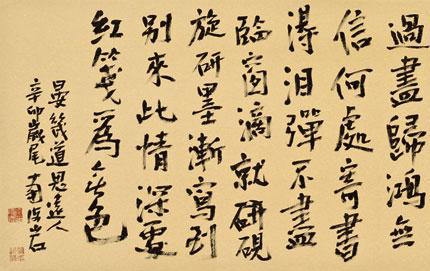 過盡歸鴻無
信何處寄書
得泪彈不盡
臨窗滴就研硯
旋研墨漸寫到
別來此情深處
紅箋爲无色
晏幾道思遠人
辛卯歲尾